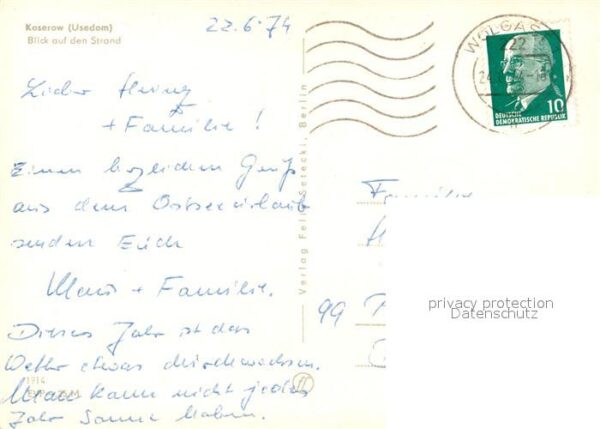 Koserow (Usedom)
Blick auf den Strand
22.6.74
Lieber Heinz
+ Familie!
Einen herzlichen Gruß
aus dem Ostseeurlaub
senden Euch
+ Familie.
Dieses Jahr ist das
Wetter etwas durchwachsen.
Man kann nicht jedes
Jahr Sonne haben.
1914
Verlag Felix Setecki, Berlin
WOLGAST
222
10
DEUTSCHE
DEMOKRATISCHE REPUBLIK
Familie
99
privacy protection
Datenschutz